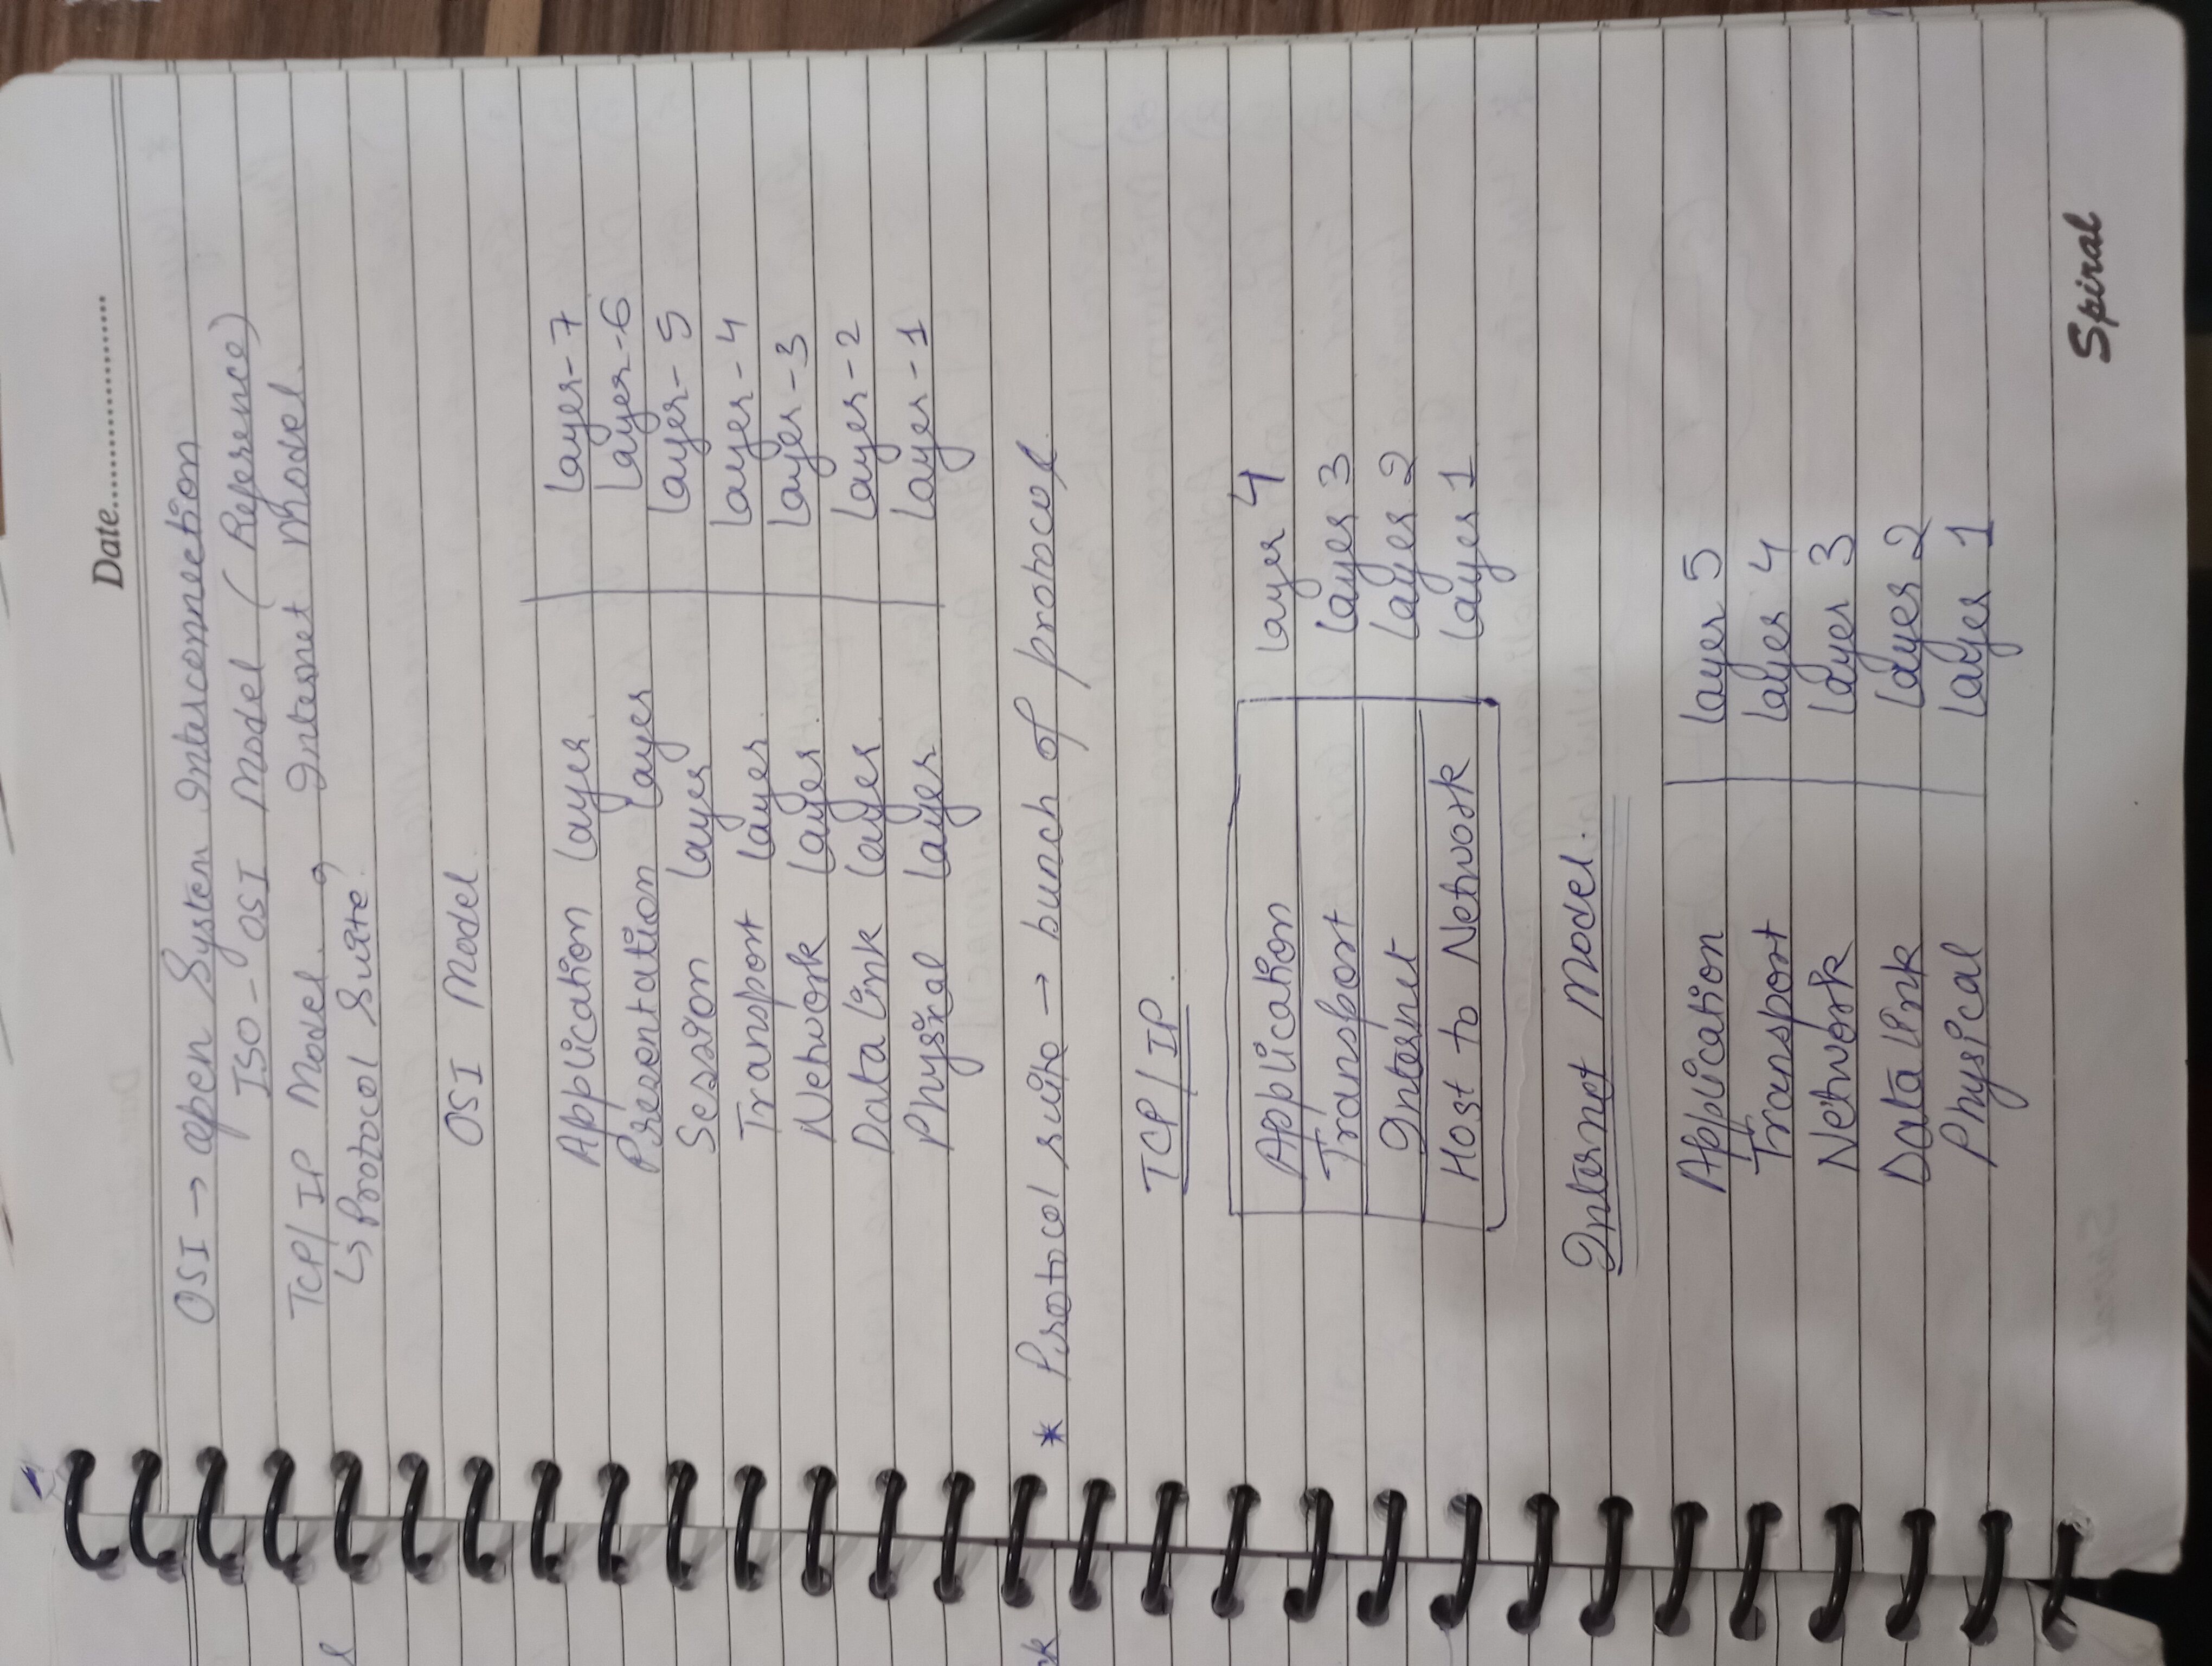 Date.....................
OSI → open System Interconnection
ISO - OSI Model (Reference)
TCP/IP Model. , Internet Model.
↳ Protocol Suite.
OSI Model.
Application layer. Layer-7
Presentation layer Layer-6
Session layer Layer-5
Transport layer. Layer-4
Network layer. Layer-3
Data link layer. Layer-2
Physical layer Layer-1
* Protocol suite → bunch of protocol.
TCP/IP.
Application layer 4
Transport layer 3
Internet layer 2
Host to Network layer 1
Internet Model.
Application layer 5
Transport layer 4
Network layer 3
Data link layer 2
Physical layer 1
Spiral